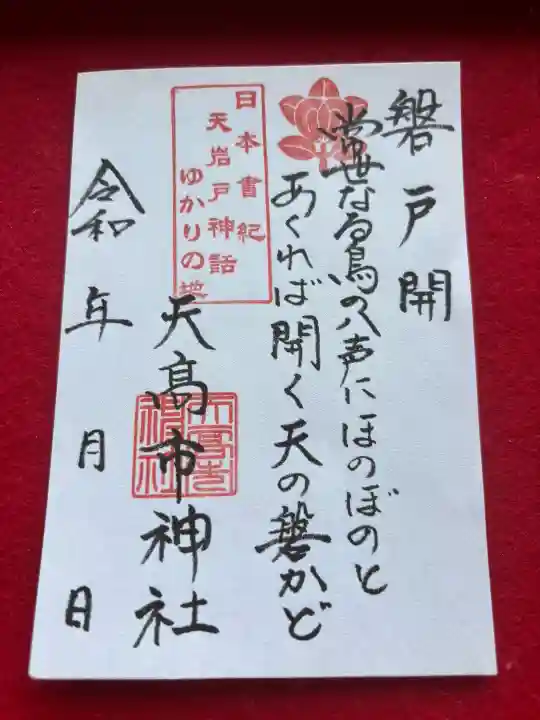 磐戸開
常世なる鳥の八声にほのぼのと
あくれば開く天の磐かど
日本書紀
天岩戸神話
ゆかりの地
天高市神社
天高市
神社
令和 年 月 日